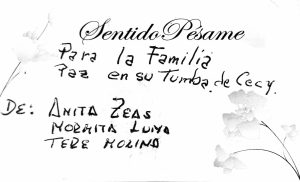 Sentido Pésame
Para la Familia
Paz en su Tumba de Cecy.
DE: ANITA ZEAS
NORMITA LUNA
TERE MOLINA